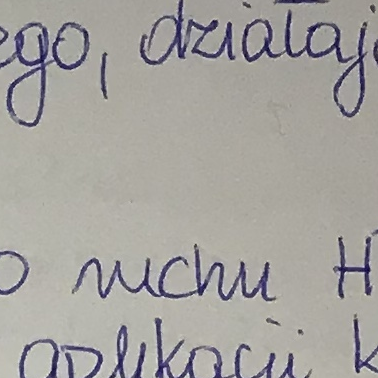 ego, działaj
o ruchu H
aplikacji k